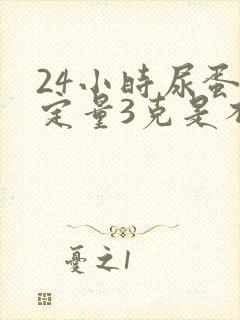 24小時尿蛋
定量3克是不
憂之1